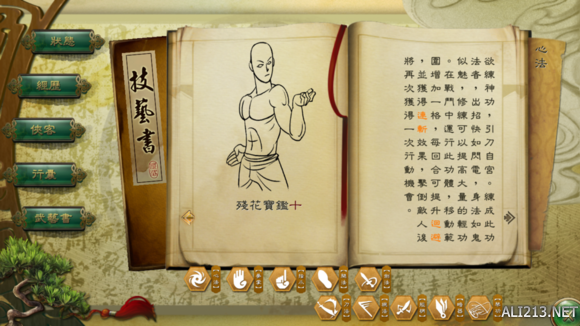 狀態
經歷
俠客
行囊
技藝書
技藝書
殘花寶鑑十
心法
欲練神功，引刀自宮。練成此功
法者，出招快如閃電，身法如鬼
似魅，修練可以提高大量的輕功
。在戰鬥中運行此功體，移動範
圍增加一格，每回合可提升連遊
，並獲得連斬效果，擊倒敵人後
將再次獲得一次行動機會。
ALI213.NET